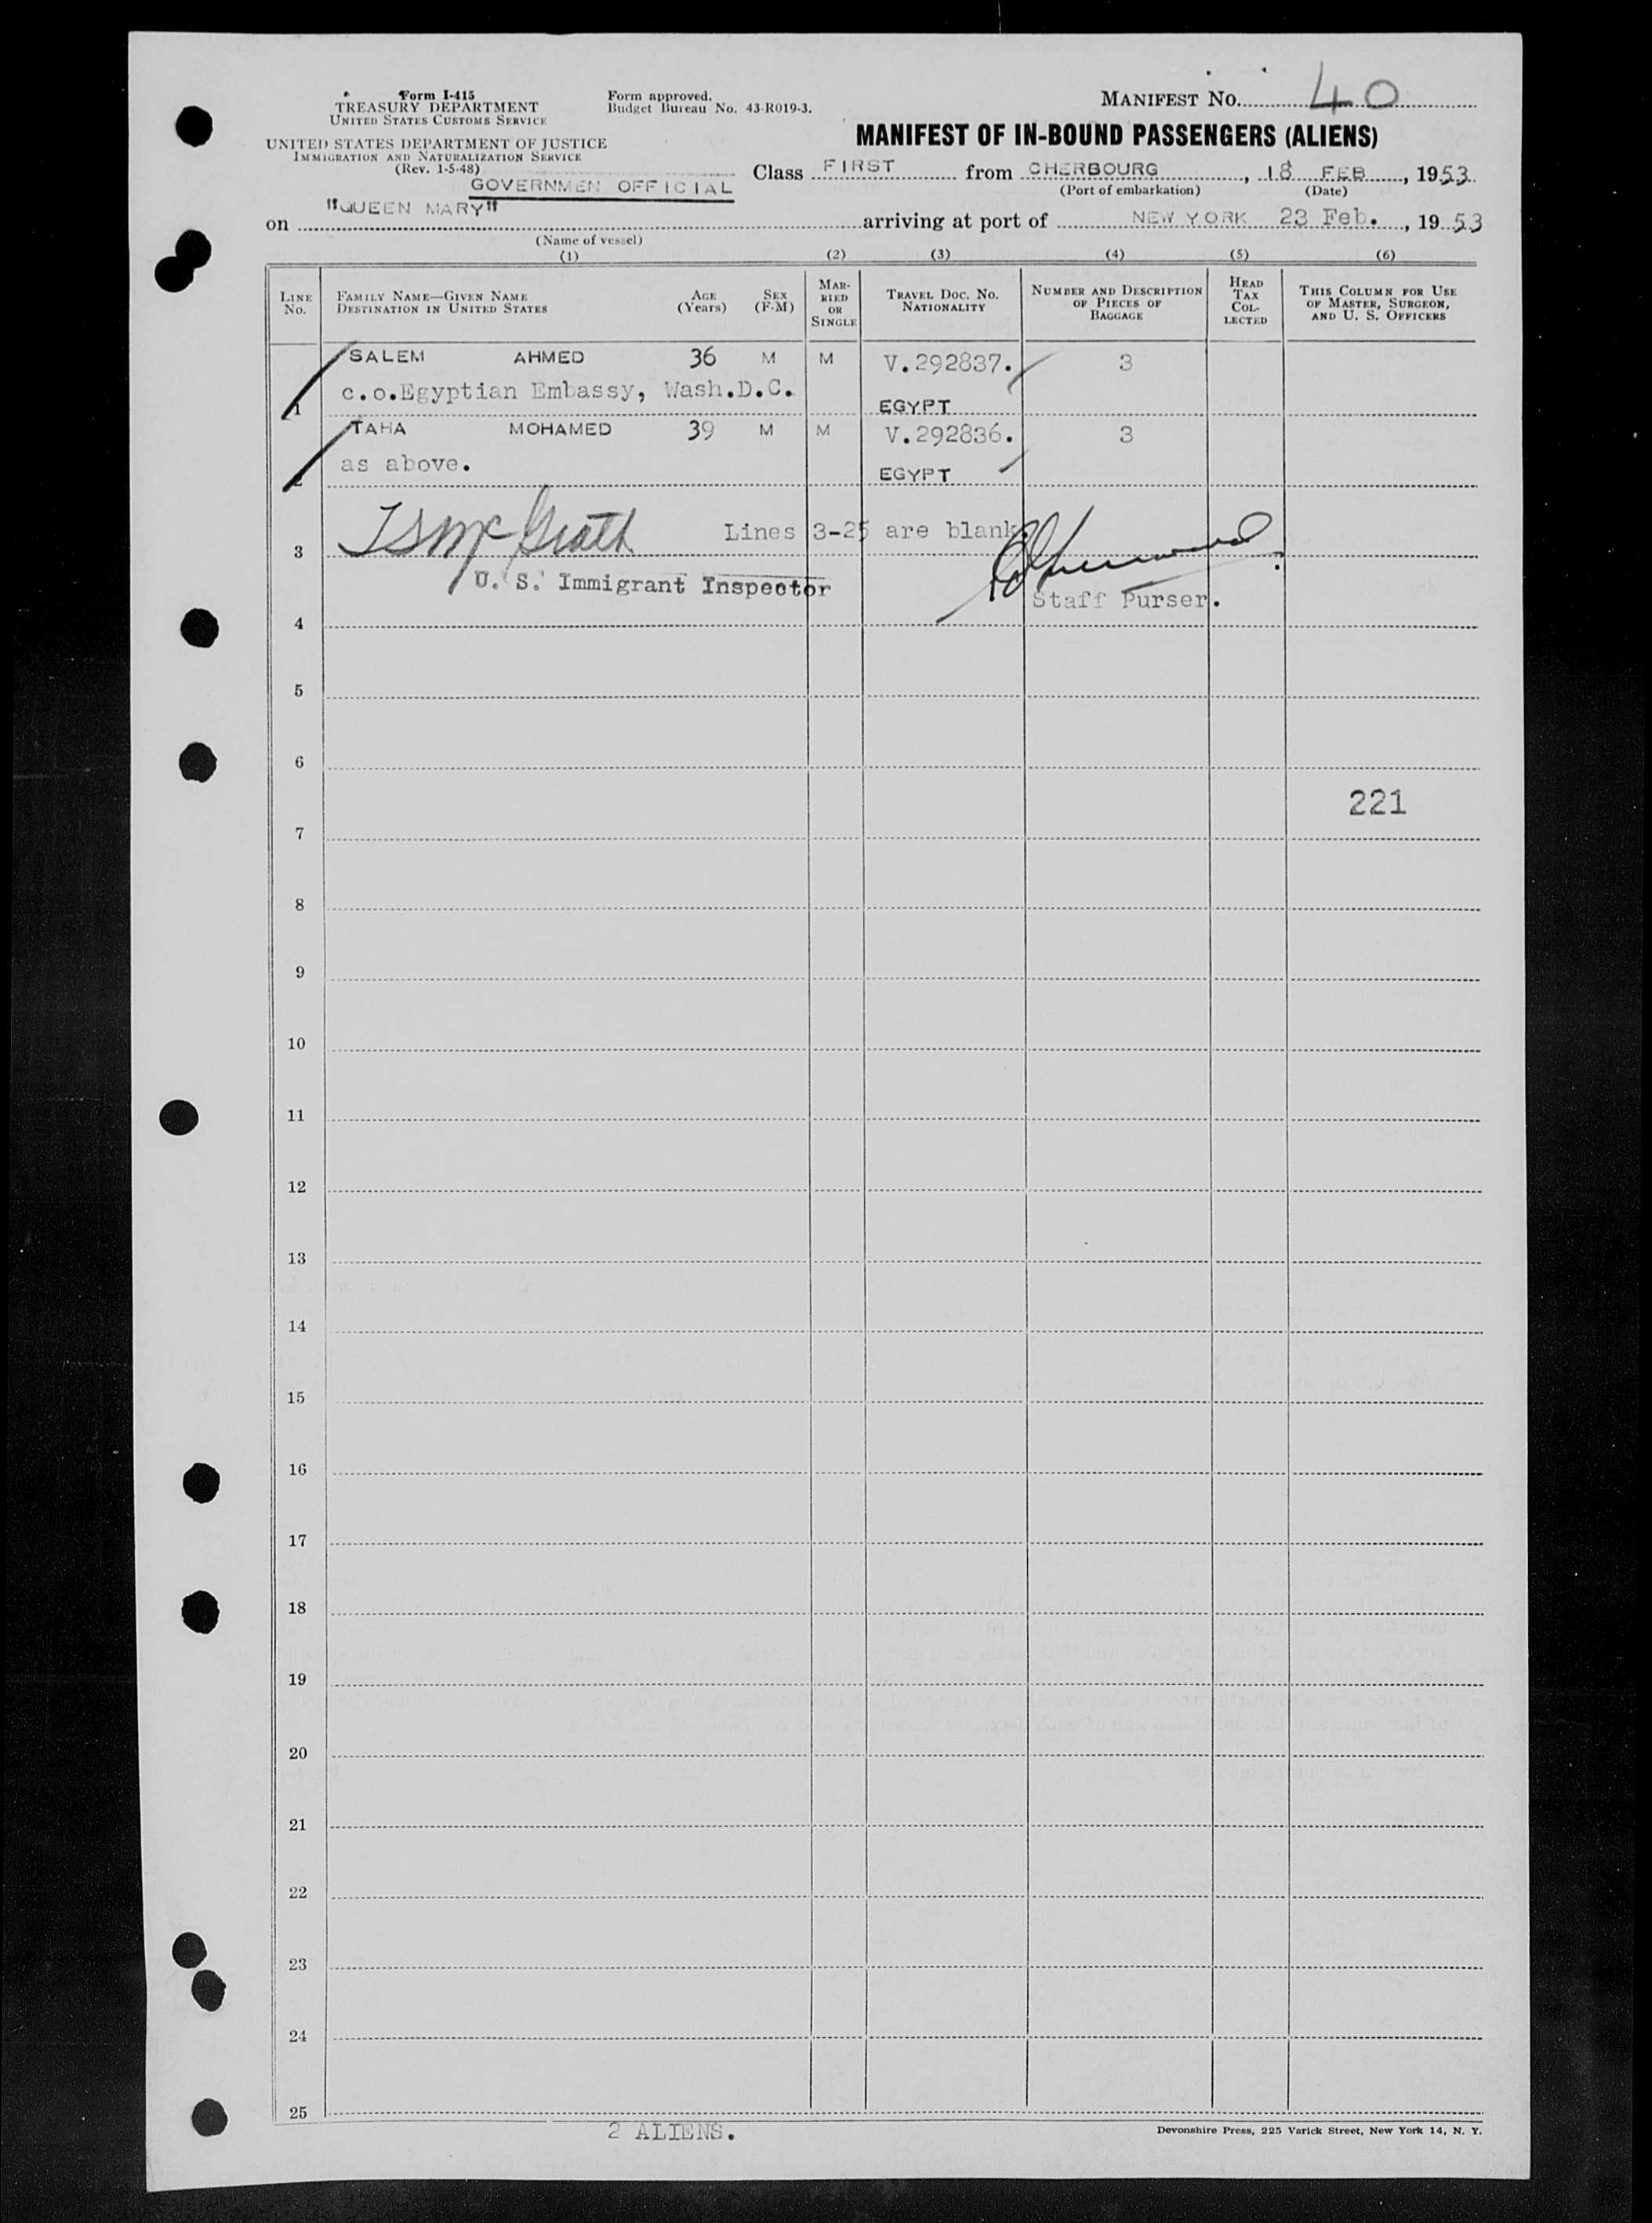 Form I-415
TREASURY DEPARTMENT
UNITED STATES CUSTOMS SERVICE
UNITED STATES DEPARTMENT OF JUSTICE
IMMIGRATION AND NATURALIZATION SERVICE
(Rev. 1-5-48)
GOVERNMEN OFFICIAL
Form approved.
Budget Bureau No. 43-R019-3.
MANIFEST No. 40
MANIFEST OF IN-BOUND PASSENGERS (ALIENS)
Class FIRST from CHERBOURG, 18 FEB, 1953
(Port of embarkation) (Date)
on "QUEEN MARY" arriving at port of NEW YORK 23 Feb., 1953
(Name of vessel)
(1) (2) (3) (4) (5) (6)
LINE No. FAMILY NAME—GIVEN NAME DESTINATION IN UNITED STATES AGE (Years) SEX (F-M) MARRIED OR SINGLE TRAVEL DOC. NO. NATIONALITY NUMBER AND DESCRIPTION OF PIECES OF BAGGAGE HEAD TAX COLLECTED THIS COLUMN FOR USE OF MASTER, SURGEON, AND U. S. OFFICERS
SALEM AHMED 36 M M V.292837. 3
1 c.o.Egyptian Embassy, Wash.D.C. EGYPT
TAHA MOHAMED 39 M M V.292836. 3
2 as above. EGYPT
3 McGrath Lines 3-25 are blank
U. S. Immigrant Inspector Staff Purser.
4
5
6
221
7
8
9
10
11
12
13
14
15
16
17
18
19
20
21
22
23
24
25
2 ALIENS.
Devonshire Press, 225 Varick Street, New York 14, N. Y.